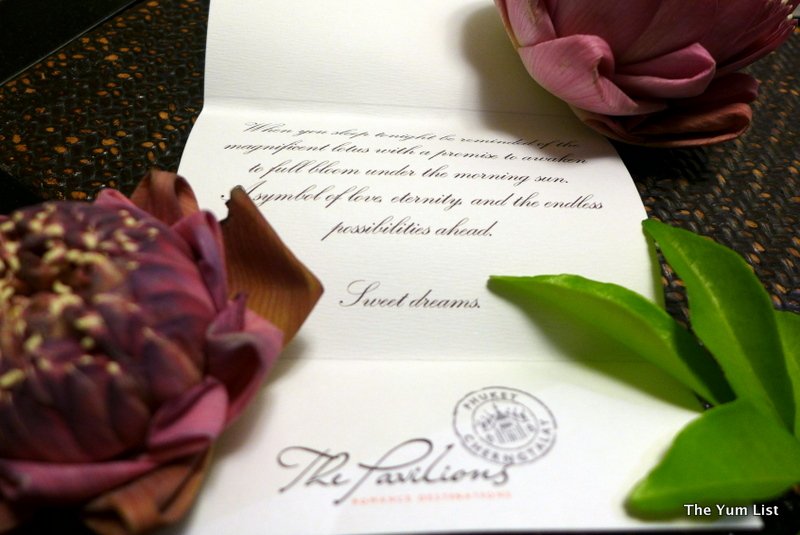 When you sleep tonight be reminded of the
magnificent lotus with a promise to awaken
to full bloom under the morning sun.
A symbol of love, eternity, and the endless
possibilities ahead.
Sweet dreams.
PHUKET
CHERNGTALAY
The Pavilions
ROMANCE DESTINATIONS
The Yum List